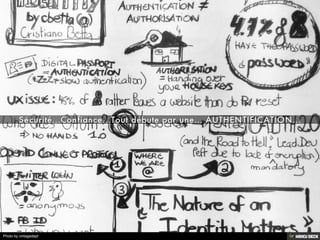 by cbetta @
Cristiano Betta
AUTHENTICATION ≠
AUTHORISATION
4.7% of
HAVE THE PASSWORD
"PASSWORD"
DIGITAL PASSPORT
= AUTHENTICATION
(+Zzz = slow authentication)
AUTHORISATION
= Handing over
your HOUSE KEYS
UX issue: 45% of rather leaves a website than do PW reset
Sécurité...Confiance? Tout débute par une... AUTHENTIFICATION.
⇒ NO HANDS 1.0
(and the Road to Hell; Lead Dev
left due to lack of encryption)
mandatory
OPENID CONNECT PROTOCOL
TWITTER LOGIN
= anonymous
FB ID
1
WHERE
WE ARE
@
2
3
"The Nature of an
Identity Matters"
Photo by cmogle
HAIKU DECK